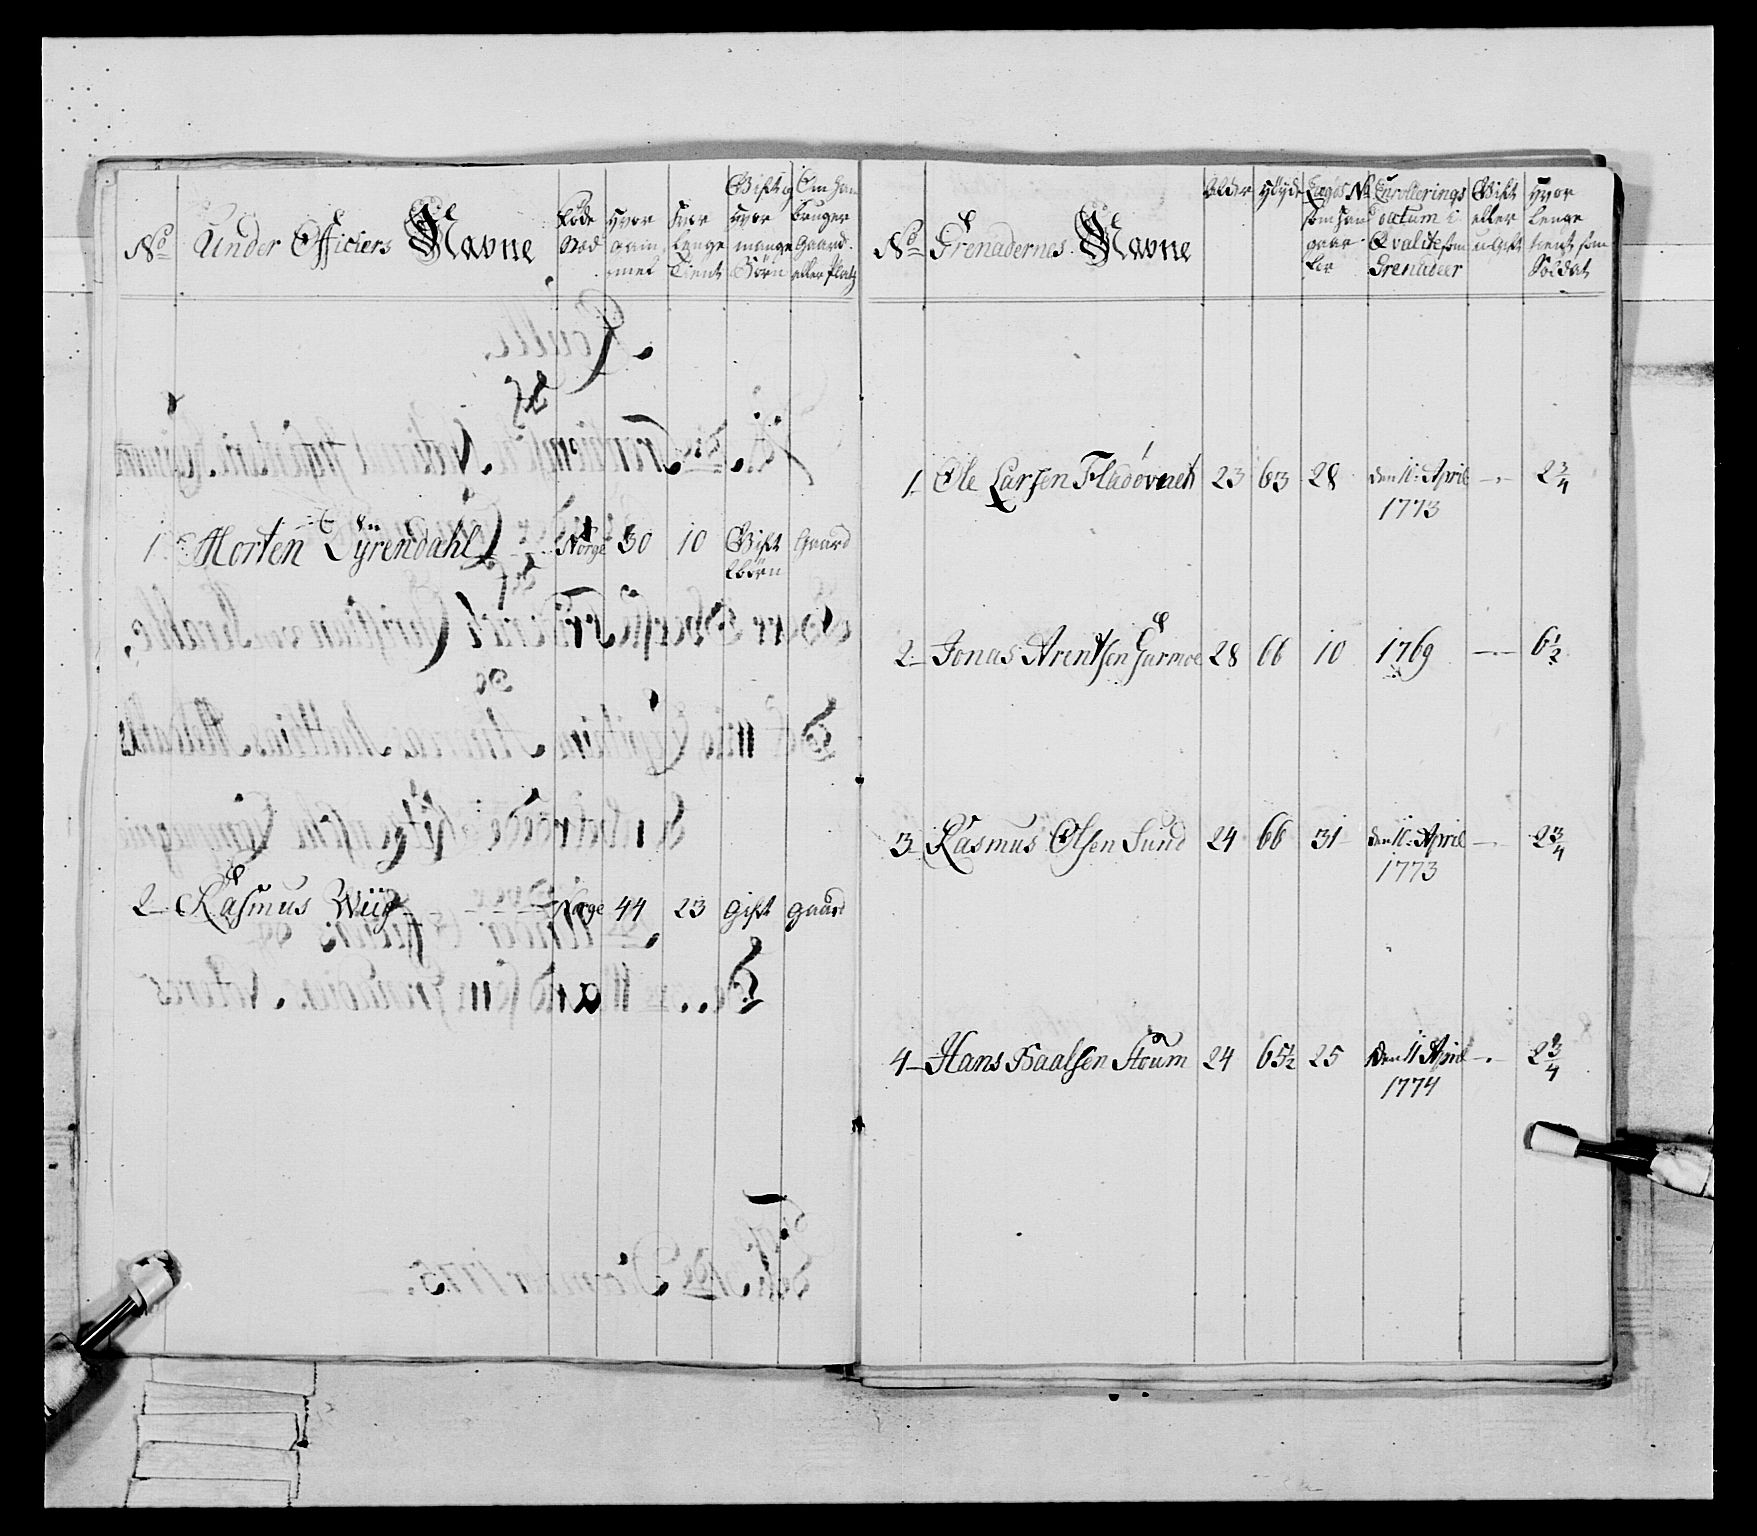 No Under Officiers Navne
Føde Sted
Hvor gammel
Hvor Længe Tient
Gift og Hvor mange Børn
Om Han bruger Gaard eller Platz
1 Morten Tÿrendahl Norge 30 10 Gift Gaard
2 børn
2 Rasmus Wiig Norge 44 23 Gift gaard
No Grenadernes Navne
Alder
Høyde
Lægds No som Han gaar for
Enrolerings datum i Qvalite som Grenadeer
Gift eller ugift
Hvor Lenge tient som Soldat
1 Ole Larsen Fladøvnet 23 63 28 den 11 April —.— 2 3/4
1773
2 Jonas Arentsen Garmoe 28 66 10 1769 —.— 6 1/2
3 Rasmus Olsen Sund 24 66 31 den 11 April —.— 2 3/4
1773
4 Hans Baalsen Stoum 24 65 1/2 25 den 11 April —.— 2 3/4
1774